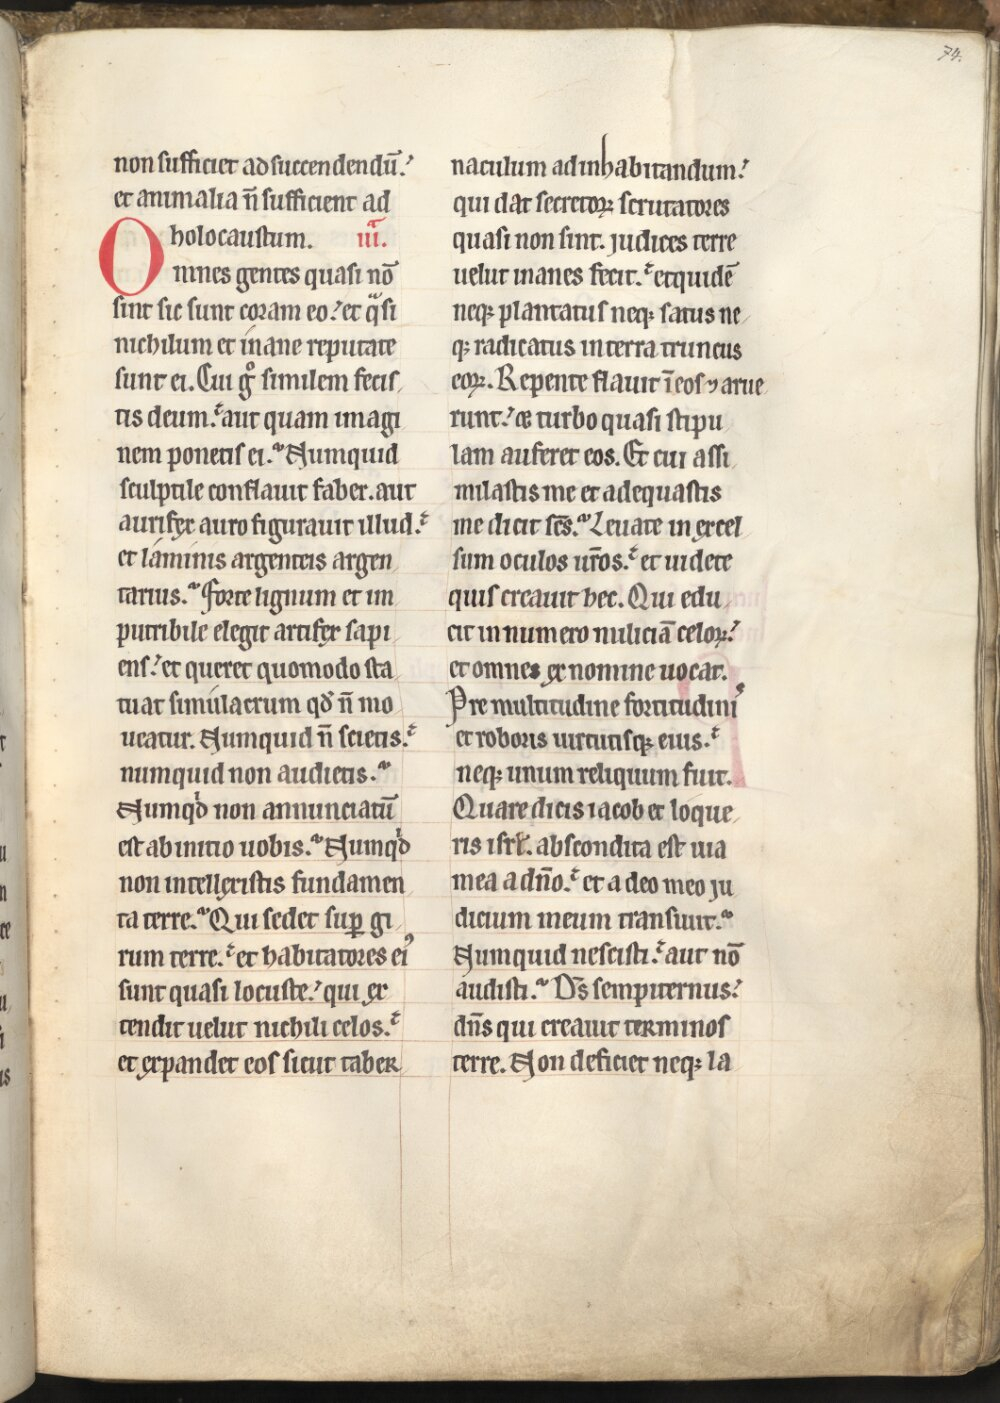 74.
non sufficiet ad succendendū.
et animalia n̄ sufficient ad
holocaustum. iii.
Omnes gentes quasi nō
sint sic sunt coram eo. et qͣsi
nichilum et inane reputate
sunt ei. Cui gͦ similem fecis
tis deum. aut quam imagi
nem ponetis ei. Numquid
sculptile conflauit faber. aut
aurifex auro figurauit illud.
et laminis argenteis argen
tarius. Forte lignum et im
putribile elegit artifex sapi
ens. et queret quomodo sta
tuat simulacrum qd̄ n̄ mo
ueatur. Numquid n̄ scietis.
numquid non audietis.
Numqͥd non annunciatū
est ab initio uobis. Numqͥd
non intellexistis fundamen
ta terre. Qui sedet sup̱ gi
rum terre. et habitatores eiꝰ
sunt quasi locuste. qui ex
tendit uelut nichili celos.
et expandet eos sicut taber
naculum ad inhabitandum.
qui dat secretoꝝ scrutatores
quasi non sint. judices terre
uelut inanes fecit. et quidē
neqꝫ plantatus neqꝫ satus ne
qꝫ radicatus in terra truncus
eoꝝ. Repente flauit ī eos ⁊ arue
runt. et turbo quasi stipu
lam auferet eos. Et cui assi
milastis me et adequastis
me dicit sc̄s. Leuate in excel
sum oculos ur̄os. et uidete
quis creauit hec. Qui edu
cit in numero miliciā celoꝝ.
et omnes ex nomine uocat.
Pre multitudine fortitudinꝭ
et roboris uirtutisqꝫ eius.
neqꝫ unum reliquum fuit.
Quare dicis iacob et loque
ris isrl̄. abscondita est uia
mea a dn̄o. et a deo meo ju
dicium meum transiuit.
Numquid nescisti. aut nō
audisti. Ds̄ sempiternus.
dn̄s qui creauit terminos
terre. Non deficiet neqꝫ la